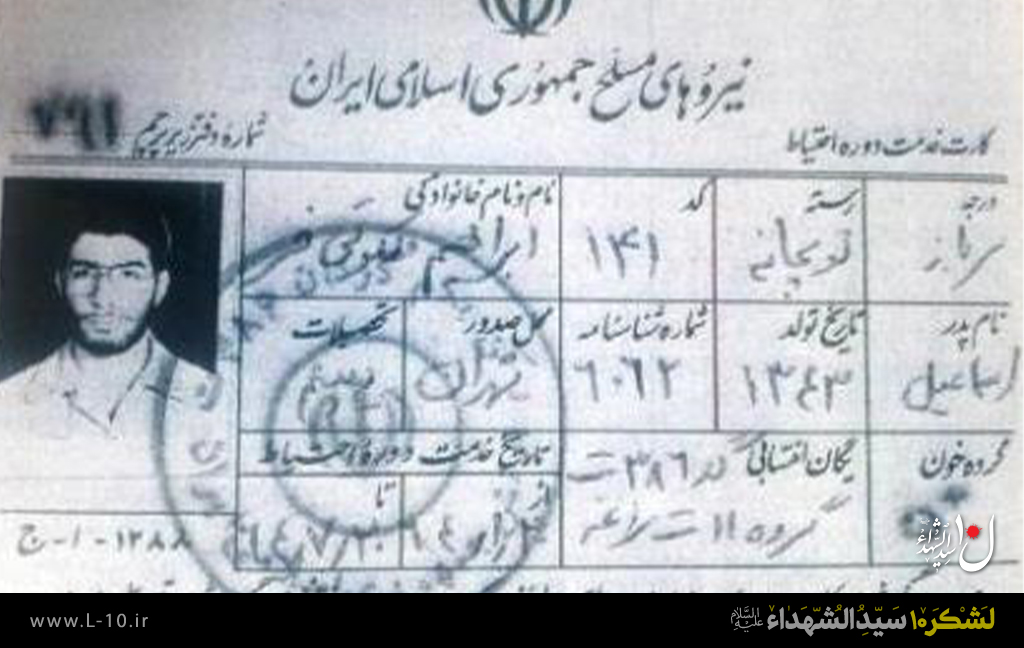 نیروهای مسلح جمهوری اسلامی ایران
کارت خدمت دوره احتیاط
شماره دفتر زیر پرچم ۷۹۶۱
درجه
سرباز
رسته
توپخانه
کد
۱۴۱
نام و نام خانوادگی
ابراهیم
نام پدر
اسماعیل
تاریخ تولد
۱۳۴۳
شماره شناسنامه
۶۰۶۲
محل صدور
تهران
تحصیلات
دیپلم
گروه خون
یگان انتسابی
گروه ۱۱ ت مراغه
تاریخ خدمت دوره احتیاط
از
تا
۱۲۸۸-۱-ج
لشکر۱۰ سیدالشهداء علیه السلام
www.L-10.ir